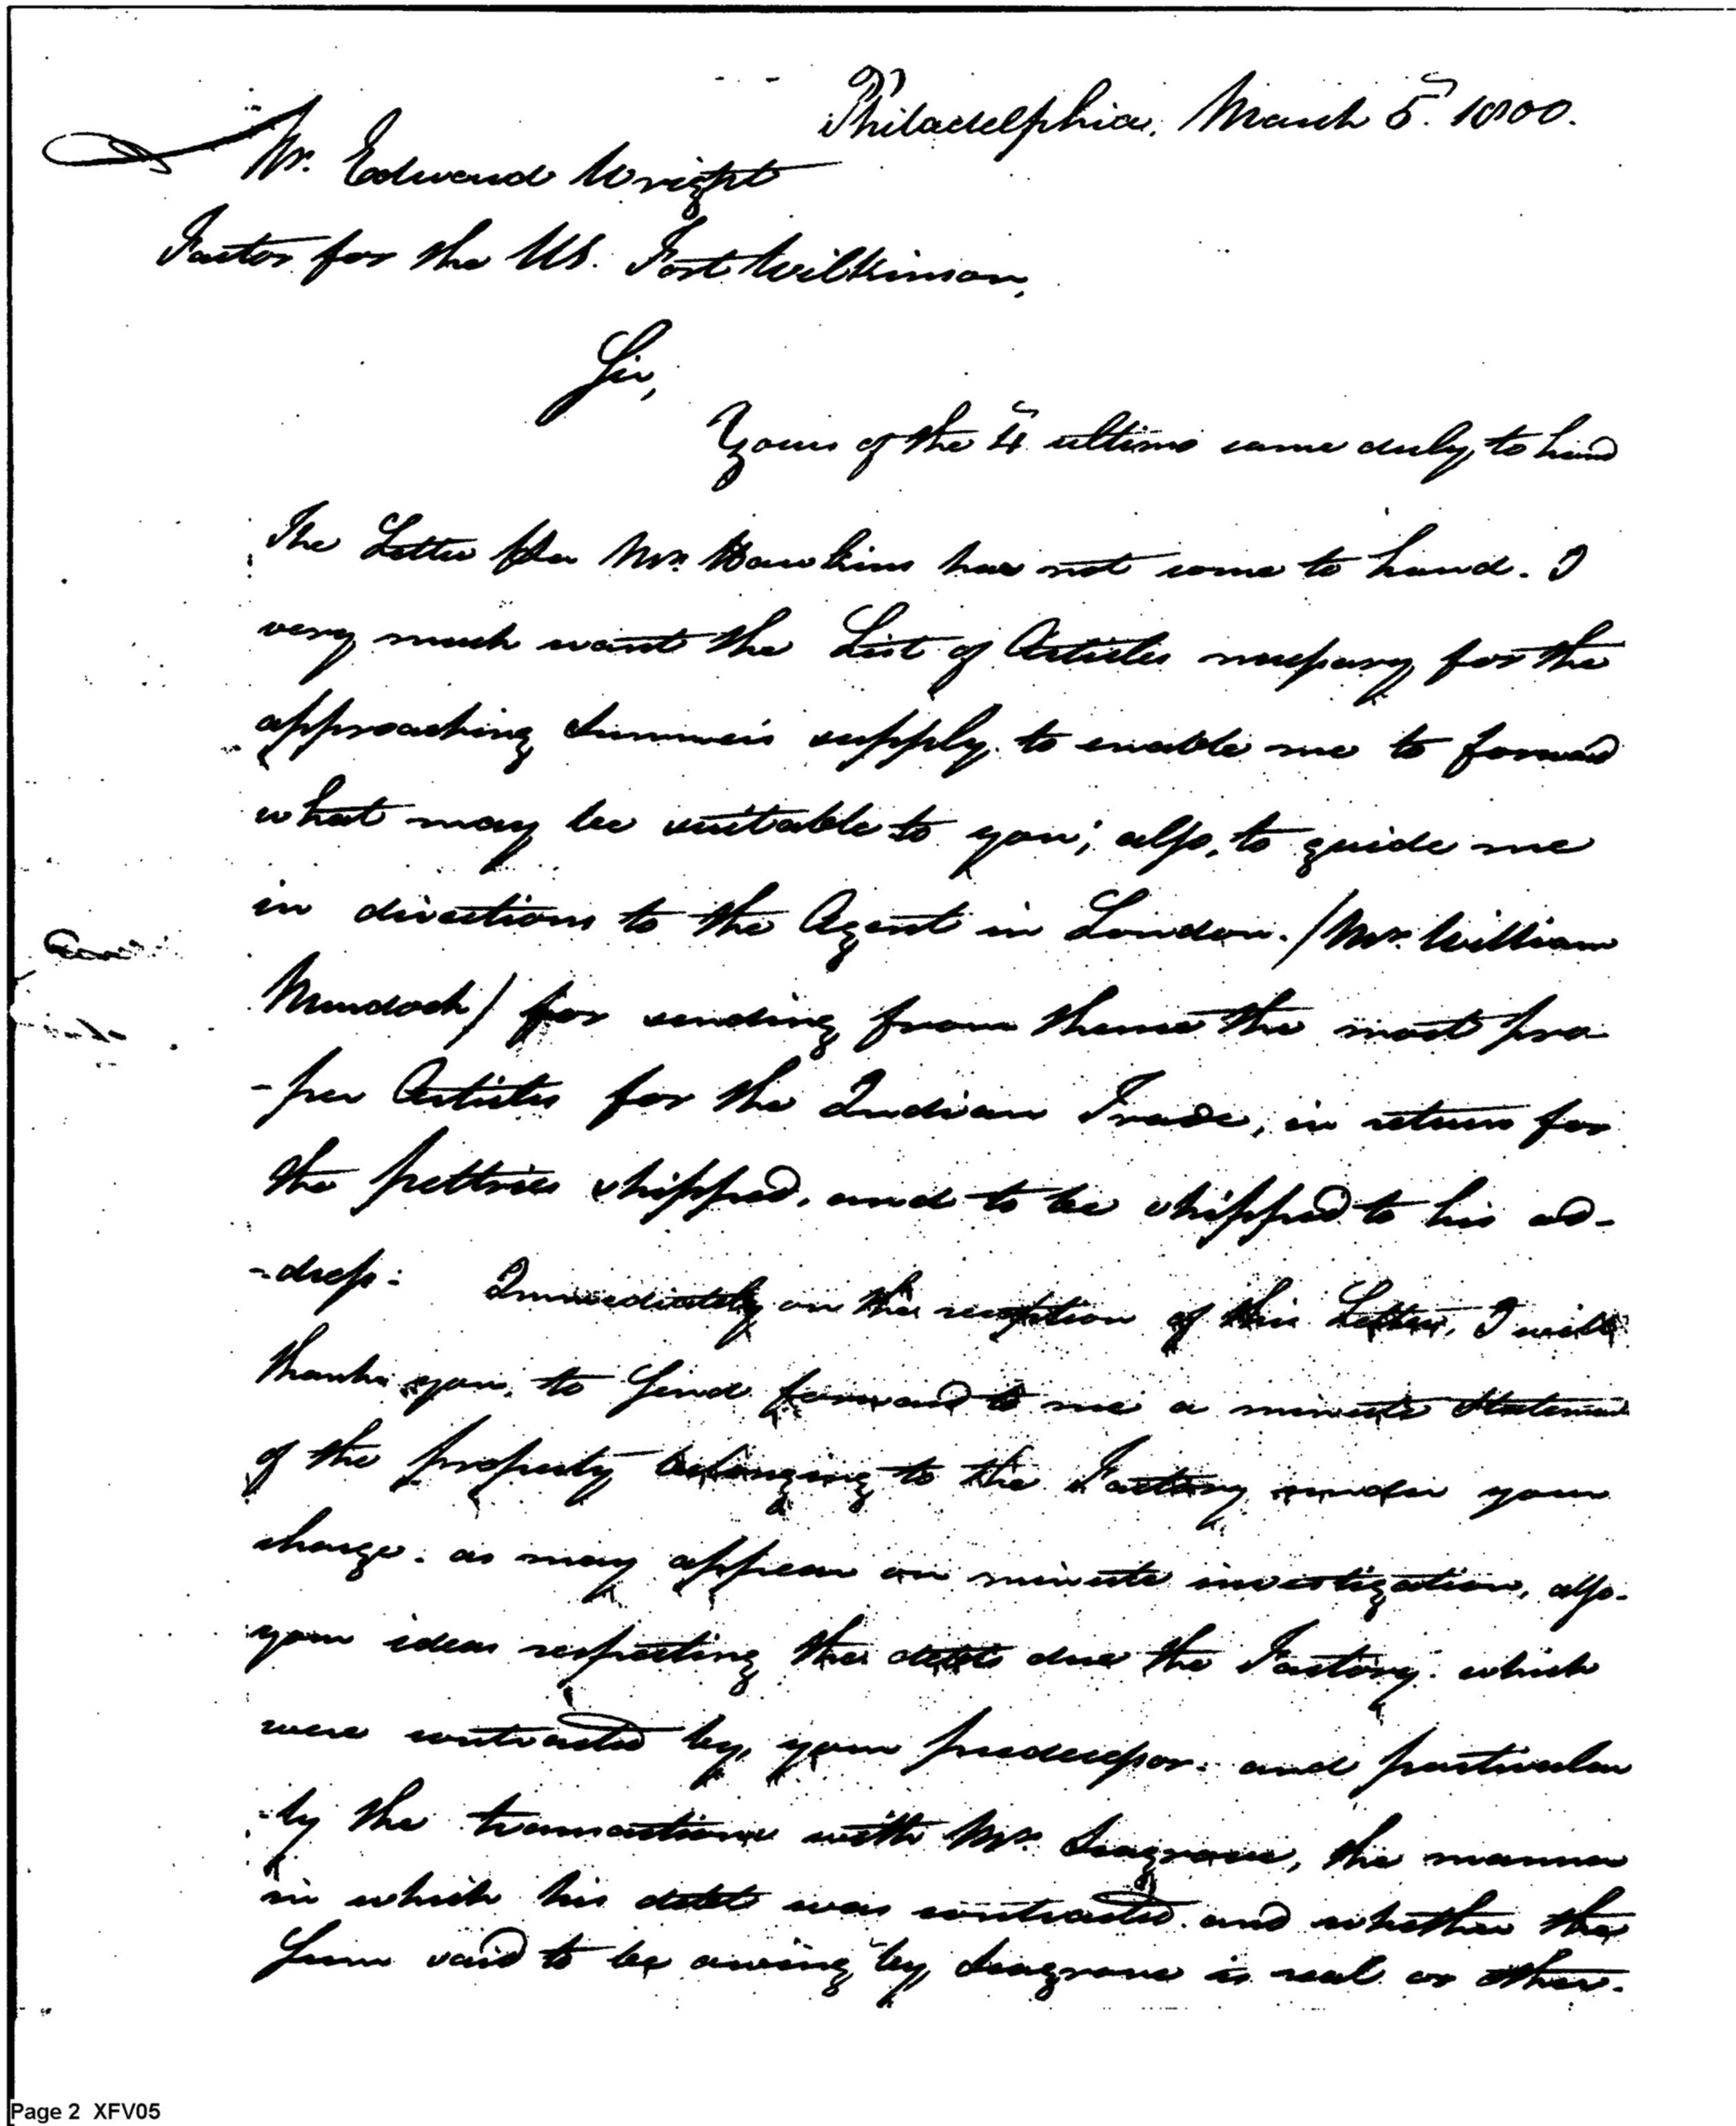 Philadelphia, March 5th. 1800.
Mr. Edward Wright
Factor for the US. Fort Wilkinson,
Sir,
Yours of the 4th ultimo came duly to hand
The Letter for Mr. Hawkins has not come to hand. I
very much want the List of Articles necessary for the
approaching Summers supply, to enable me to forward
what may be suitable to you; also, to guide me
in directions to the Agent in London. /Mr. William
Murdoch/ for sending from thence the most pro
-per Articles for the Indian Trade, in return for
the peltries shipped, and to be shipped to his ad-
-dress. Immediately on the reception of this Letter, I will
thank you, to Send forward to me a minute Statement
of the property belonging to the Factory under your
charge. as may appear on minute investigation, also.
your ideas respecting the debts due the Factory. which
were contracted by, your predecessor. and particular
-ly the transactions with Mr. Seagrove, the manner
in which his debt was contracted. and whether the
Sum said to be owing by Seagrove is real or other-
Page 2 XFV05